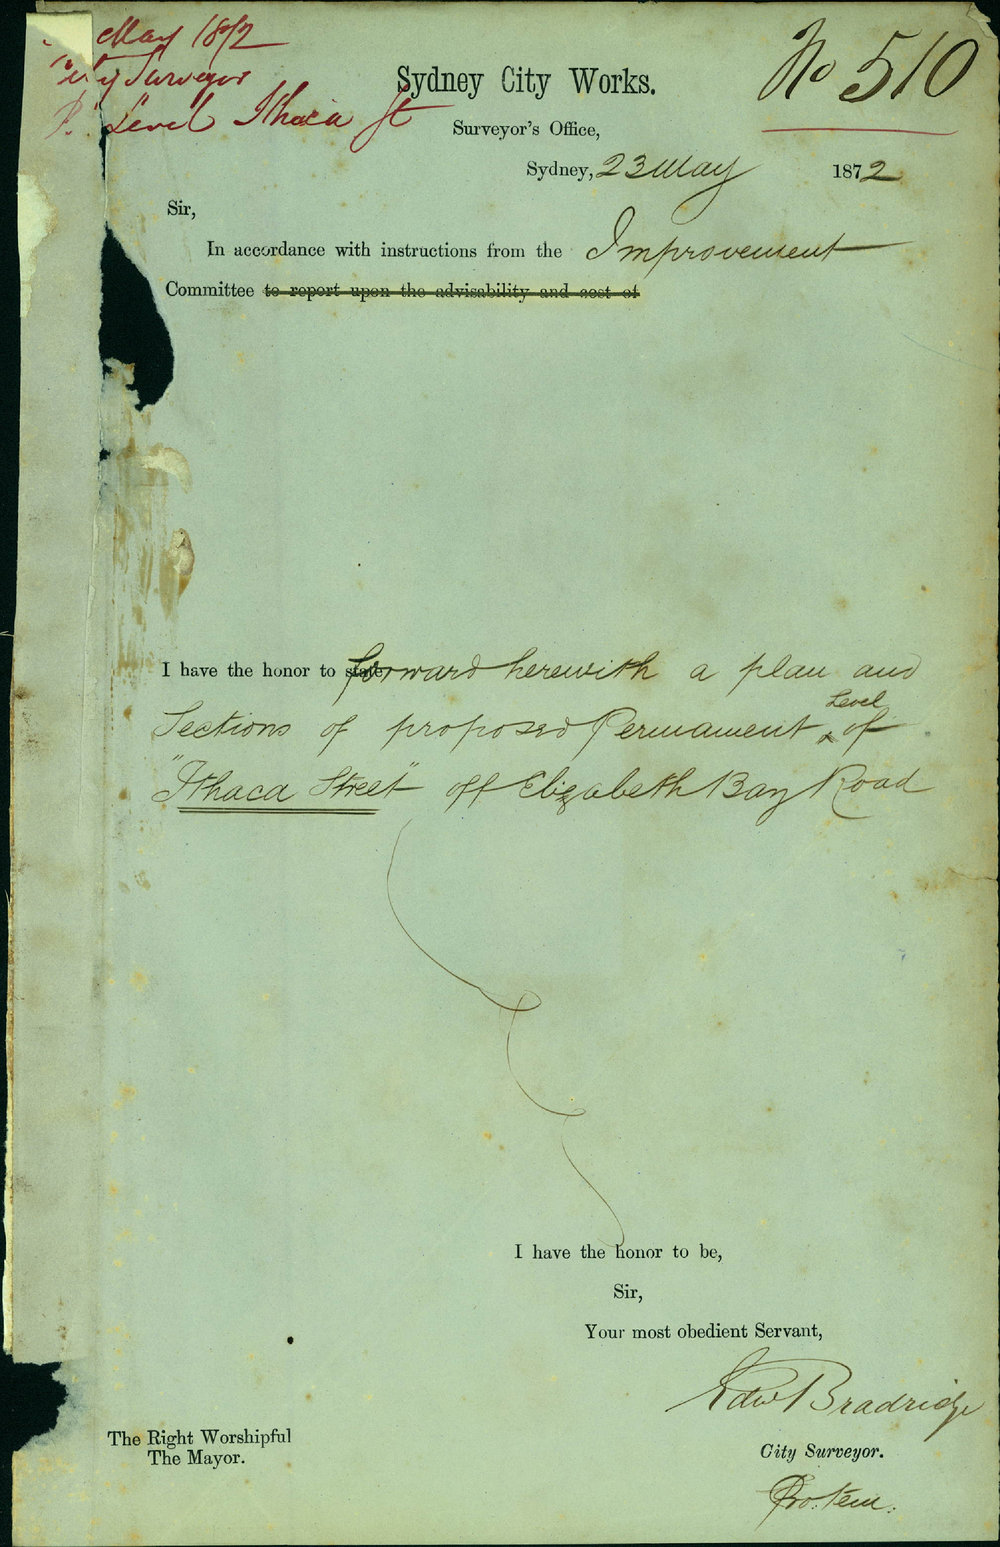 May 1872
City Surveyor
P. Level Ithaca St
No 510
Sydney City Works.
Surveyor's Office,
Sydney, 23 May 1872
Sir,
In accordance with instructions from the Improvement
Committee to report upon the advisability and cost of
I have the honor to state, forward herewith a plan and
Sections of proposed Permanent Level of
"Ithaca Street" off Elizabeth Bay Road
I have the honor to be,
Sir,
Your most obedient Servant,
Edw Bradridge
City Surveyor.
Pro. tem.
The Right Worshipful
The Mayor.